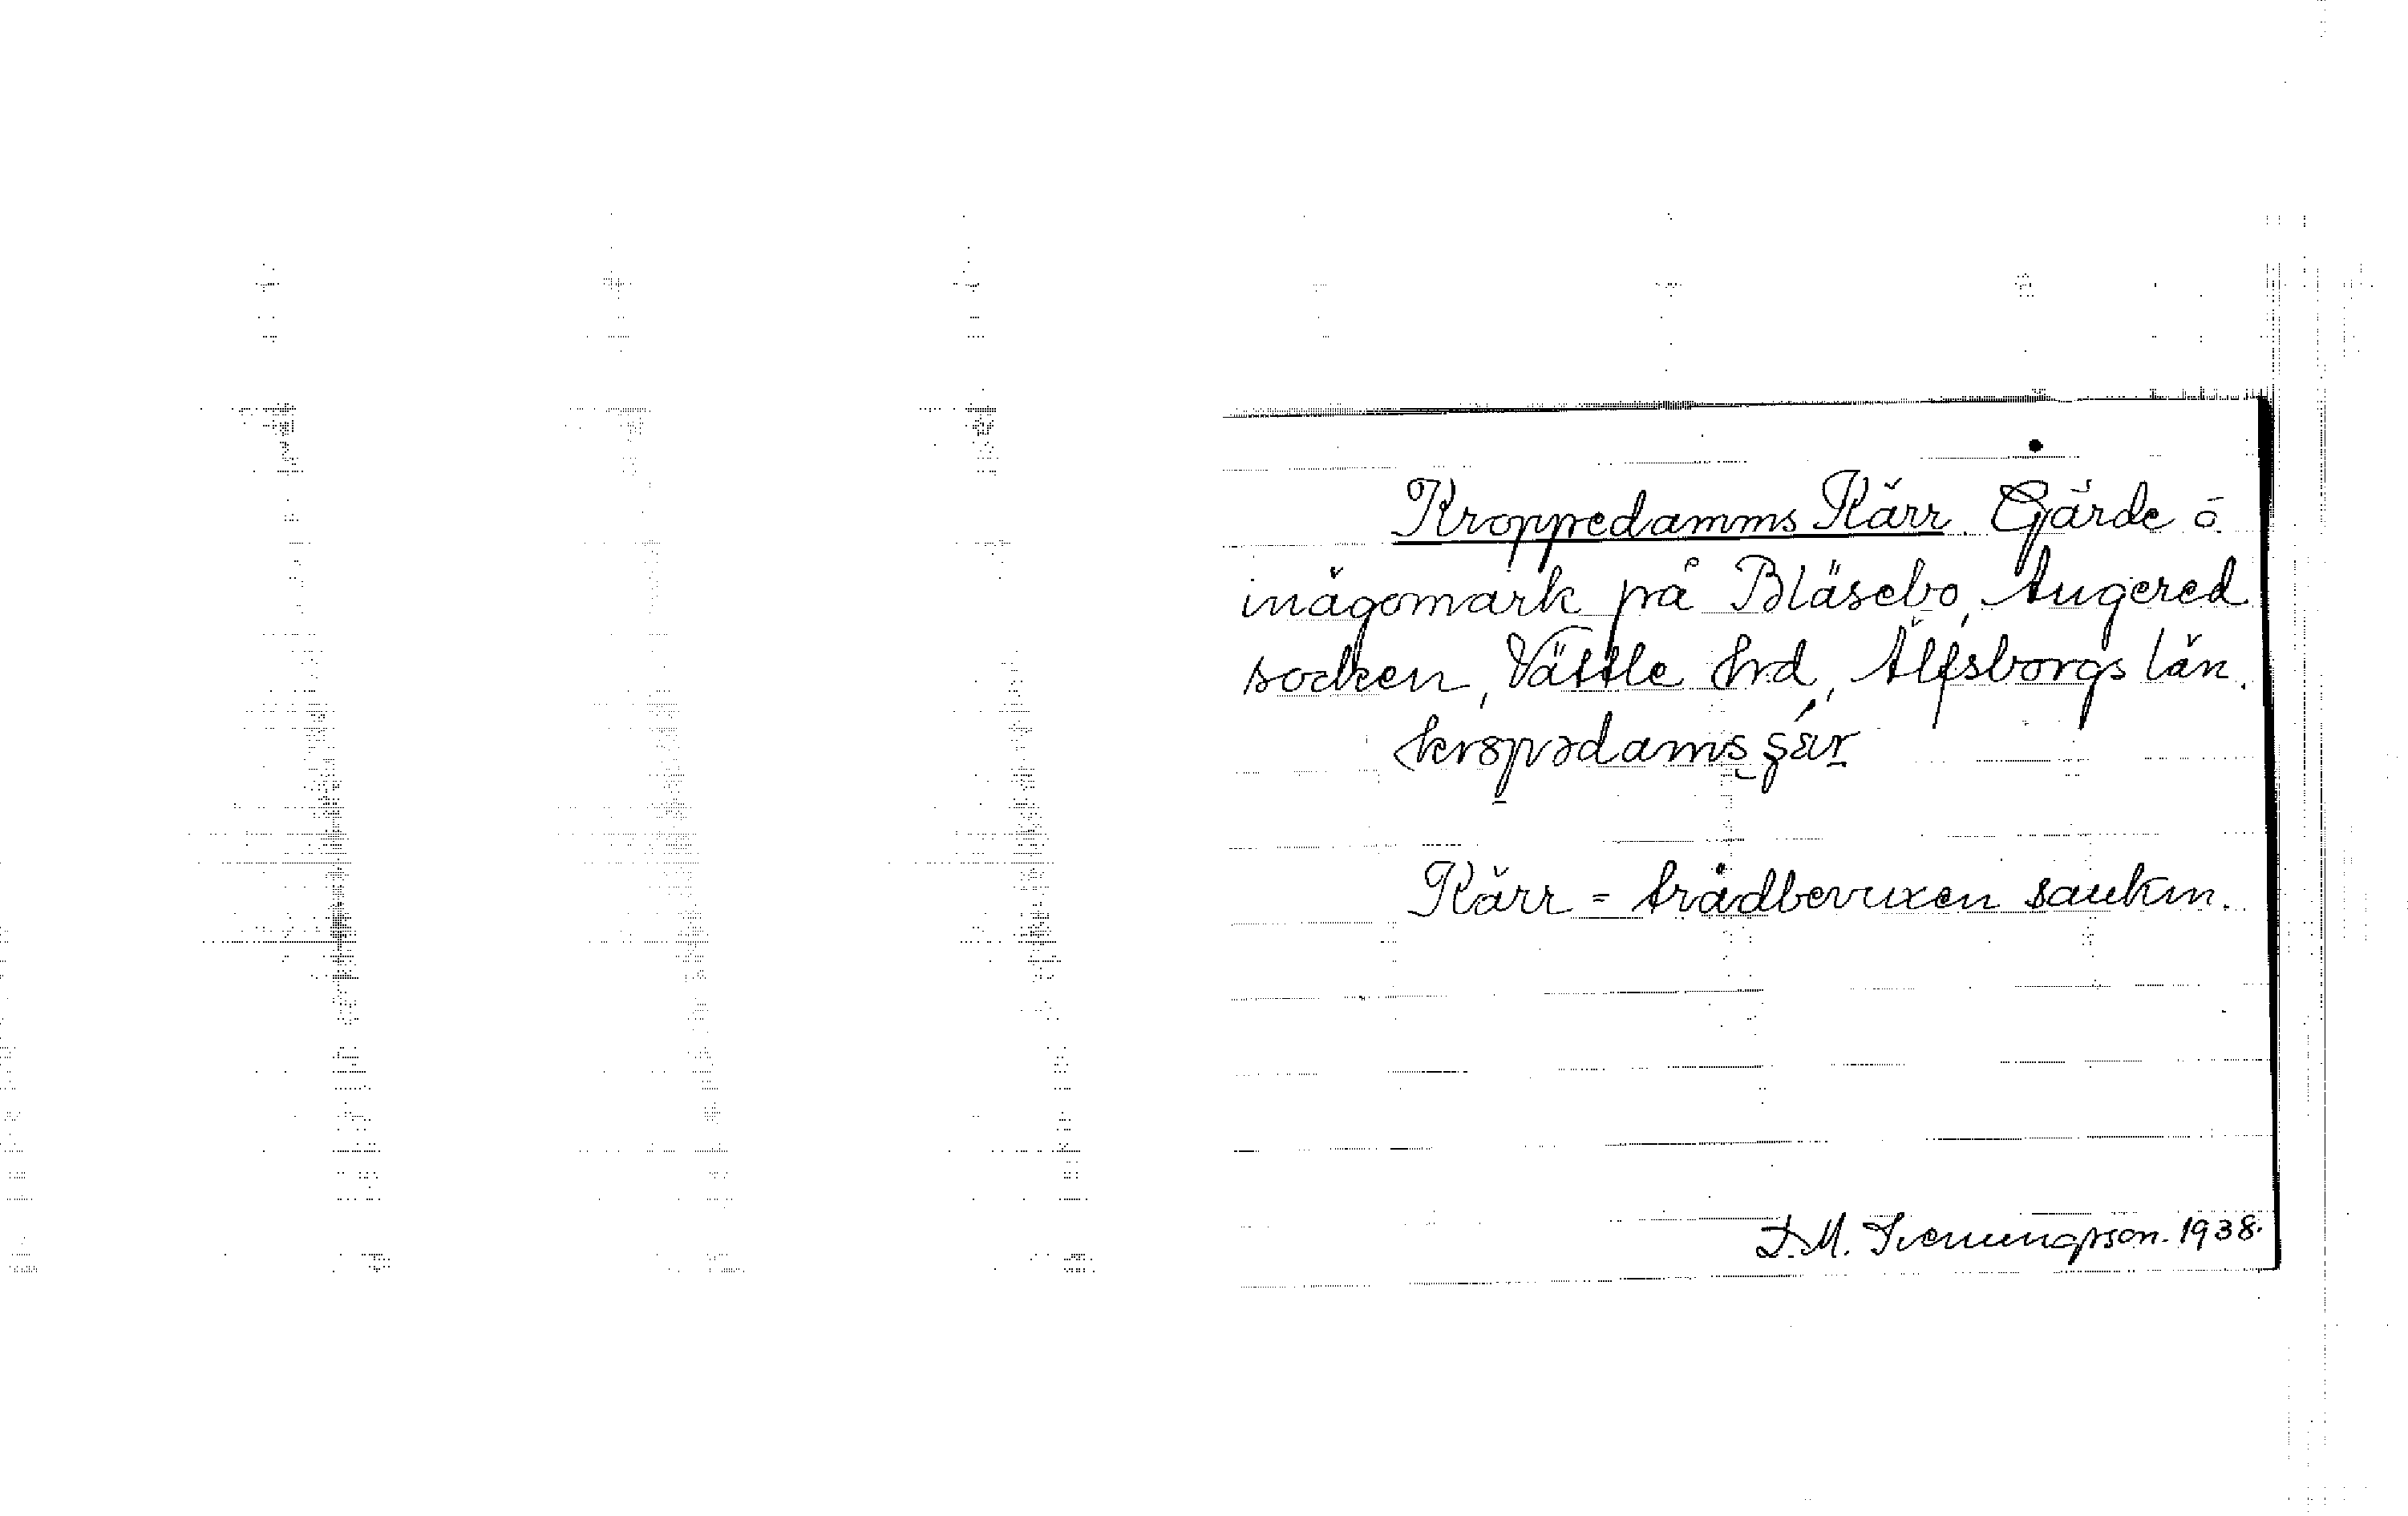 Kroppedamms Kärr. Gärde å
inägomark på Bläsebo, Angered
socken, Vättle hrd, Älfsborgs län.
Kärr = trädbevuxen sankm.
D.M. Svenungsson. 1938.